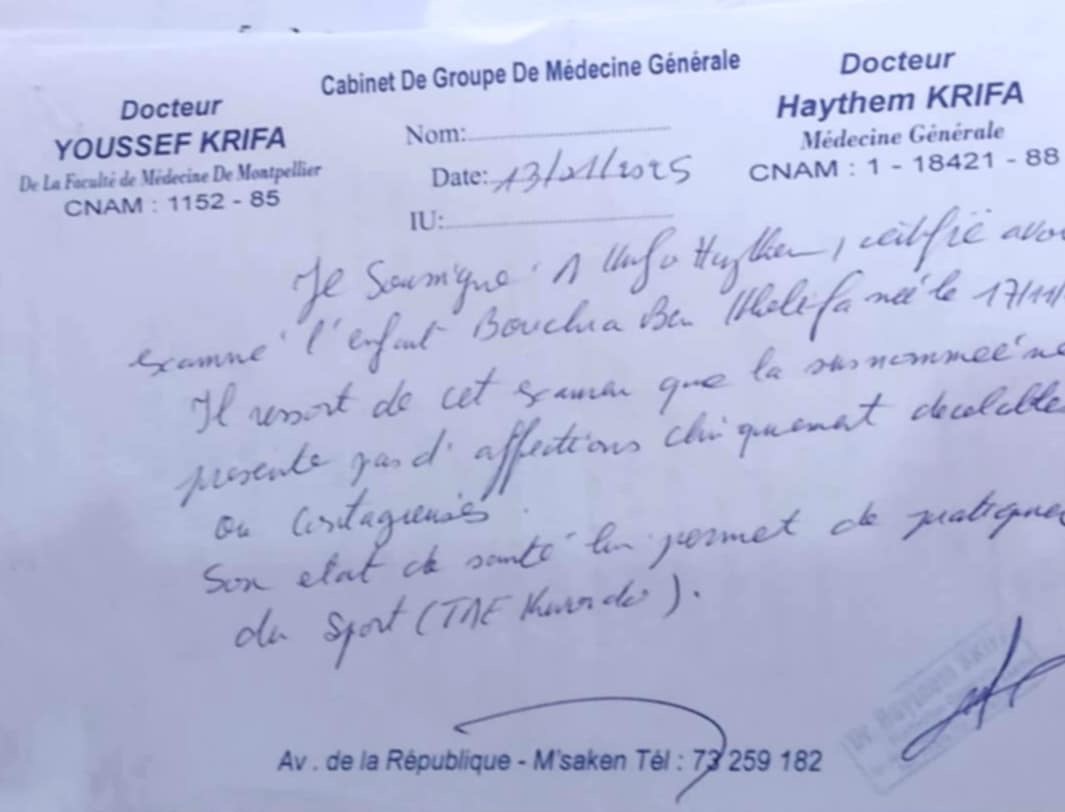 Cabinet De Groupe De Médecine Générale
Docteur
YOUSSEF KRIFA
De La Faculté de Médecine De Montpellier
CNAM : 1152 - 85
Nom:
Date: 13/01/2025
IU:
Docteur
Haythem KRIFA
Médecine Générale
CNAM : 1 - 18421 - 88
Je Soussigné Haythem, certifie avoi
examiné l'enfant Bouchra Ben Khelifa née le 17/11/
Il ressort de cet examen que la susnommée ne
présente pas d'affections cliniquement decelable
ou Contagieuses.
Son etat de santé lui permet de pratiquer
du Sport (TAE Kwondo).
Dr Haythem KRIFA
Av . de la République - M'saken Tél : 73 259 182